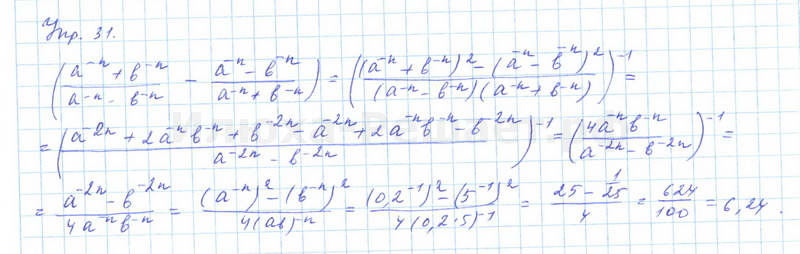 Упр. 31.
((a⁻ⁿ + b⁻ⁿ)/(a⁻ⁿ - b⁻ⁿ) - (a⁻ⁿ - b⁻ⁿ)/(a⁻ⁿ + b⁻ⁿ)) = (((a⁻ⁿ + b⁻ⁿ)² - (a⁻ⁿ - b⁻ⁿ)²)/((a⁻ⁿ - b⁻ⁿ)(a⁻ⁿ + b⁻ⁿ)))⁻¹ =
= ((a⁻²ⁿ + 2a⁻ⁿb⁻ⁿ + b⁻²ⁿ - a⁻²ⁿ + 2a⁻ⁿb⁻ⁿ - b⁻²ⁿ)/(a⁻²ⁿ - b⁻²ⁿ))⁻¹ = (4a⁻ⁿb⁻ⁿ/(a⁻²ⁿ - b⁻²ⁿ))⁻¹ =
= (a⁻²ⁿ - b⁻²ⁿ)/(4a⁻ⁿb⁻ⁿ) = ((a⁻ⁿ)² - (b⁻ⁿ)²)/(4(ab)⁻ⁿ) = ((0,2⁻¹)² - (5⁻¹)²)/(4(0,2·5)⁻¹) = (25 - 1/25)/4 = 624/100 = 6,24.